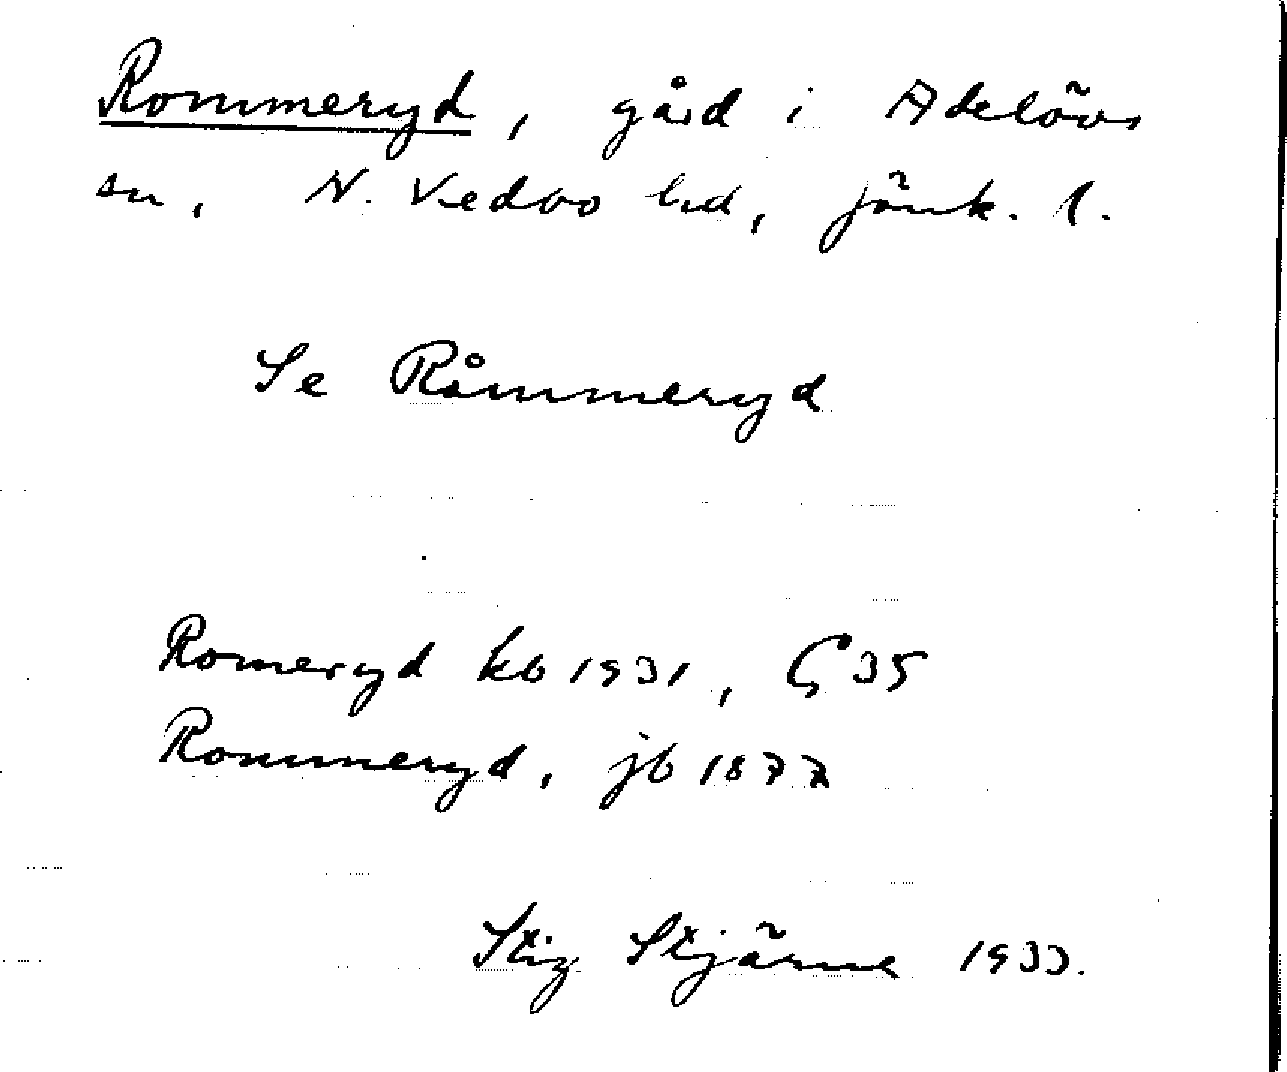 Rommeryd, gård i Adelövs
sn, N. Vedbo hd, Jönk. l.
Se Råmmeryd
Romeryd kb 1931, G 35
Rommeryd, jb 1877
Stig Stjärne 1933.